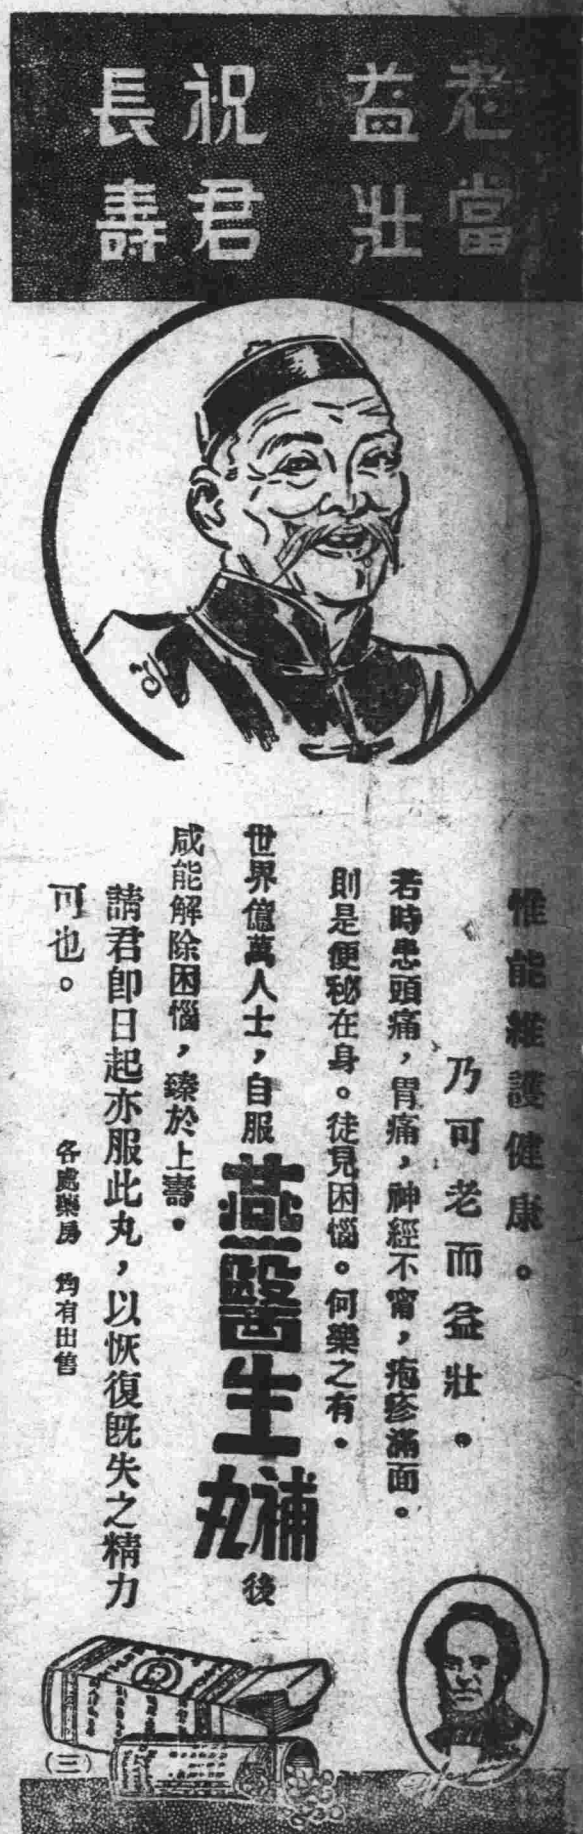 老當
益壯
祝君
長壽
惟能維護健康。
乃可老而益壯。
若時患頭痛，胃痛，神經不甯，疱疹滿面。
則是便秘在身。徒見困惱。何樂之有。
世界億萬人士，自服燕醫生補丸後
咸能解除困惱，臻於上壽。
請君即日起亦服此丸，以恢復旣失之精力
可也。
各處藥房 均有出售
(三)